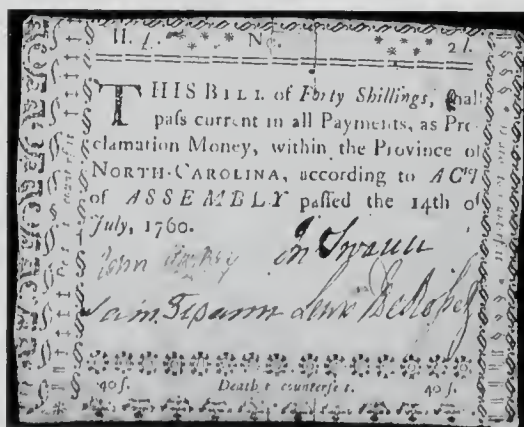 H. 1. Nº. 2l.
THIS BILL of Forty Shillings, ſhall
paſs current in all Payments, as Pro
clamation Money, within the Province of
NORTH-CAROLINA, according to ACT
of ASSEMBLY paſſed the 14th of
July, 1760.
John Jn Swann
Sam Swann Lewis DeRoſset
40ſ. Death t counterfe t. 40ſ.